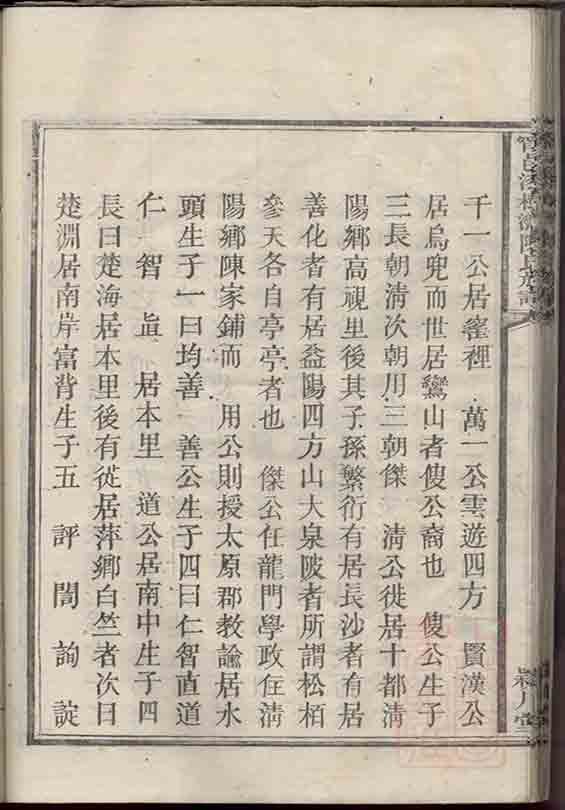 千一公居窰裡 萬一公雲遊四方 賢漢公
居烏兜而世居鸞山者傻公裔也 傻公生子
三長朝清次朝用三朝傑 清公徙居十都清
陽鄉高視里後其子孫繁衍有居長沙者有居
善化者有居益陽四方山大泉陂者所謂松栢
參天各自亭亭者也 傑公任龍門學政住清
陽鄉陳家鋪而 用公則授太原郡教諭居水
頭生子一曰均善 善公生子四曰仁智直道
仁 智 直 居本里 道公居南中生子四
長曰楚海居本里後有徙居萍鄉白竺者次曰
楚淵居南岸富背生子五 評 誾 詢 諚
陳氏族譜
潁川堂